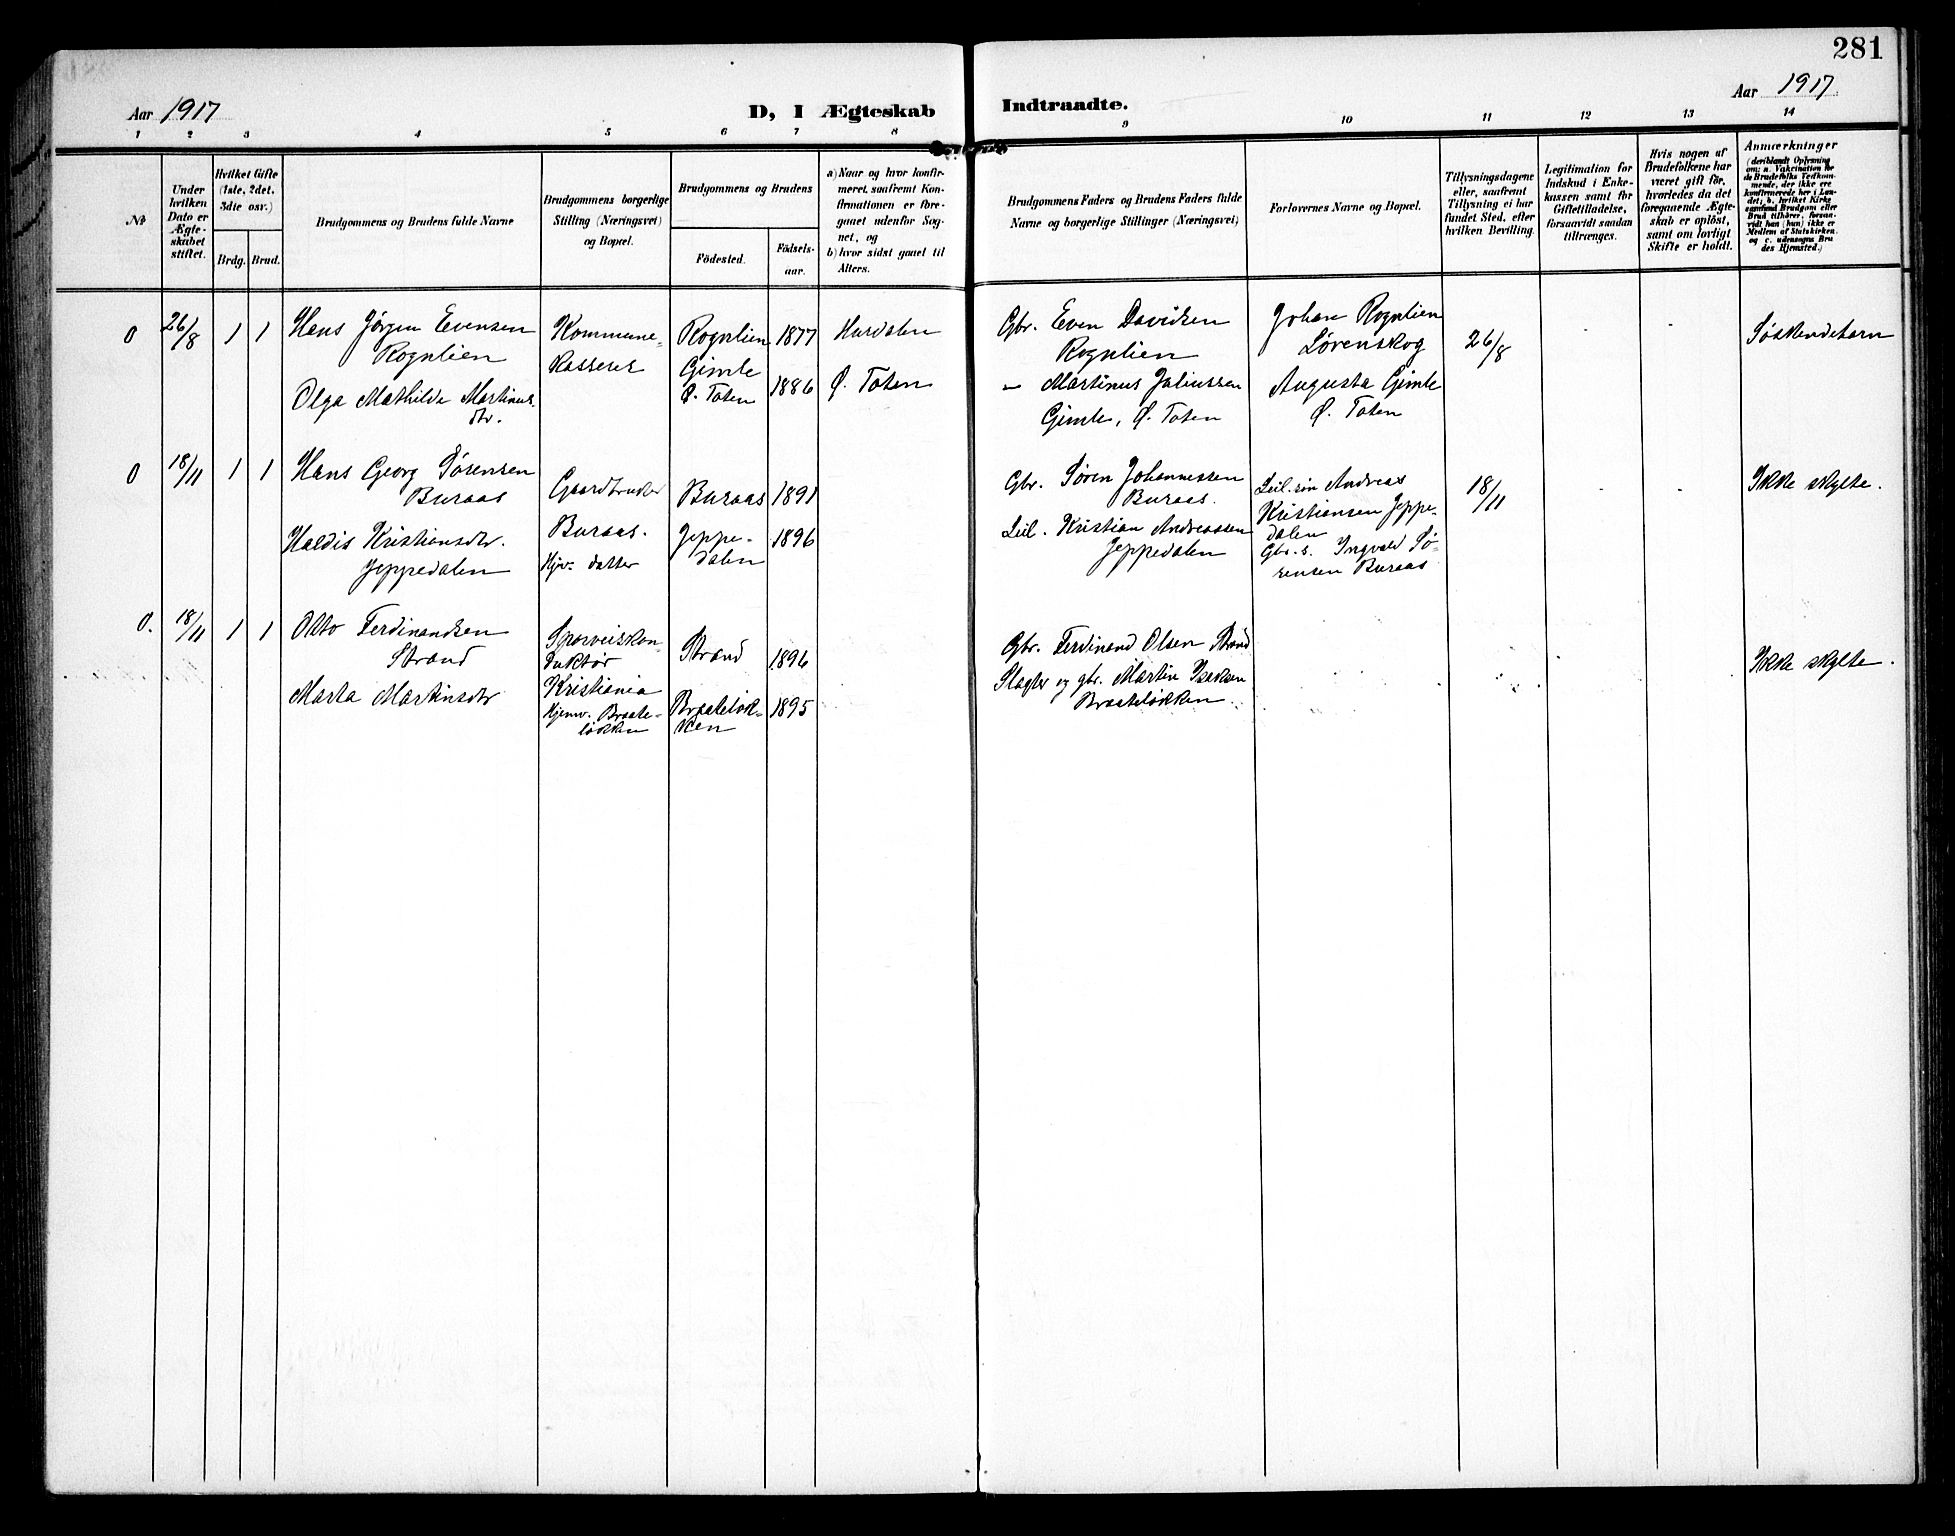 281
Aar 1917
D, I Ægteskab
Indtraadte.
Aar 1917.
1 2 3 4 5 6 7 8 9 10 11 12 13 14
No
Under
hvilken
Dato er
Ægte-
skabet
stiftet.
Hvilket Gifte
(1ste, 2det,
3die osv.)
Brdg. Brud.
Brudgommens og Brudens fulde Navne
Brudgommens borgerlige
Stilling (Næringsvei)
og Bopæl.
Brudgommens og Brudens
Födested.
Fødsels-
aar.
a) Naar og hvor konfir-
meret, saafremt Kon-
firmationen er fore-
gaaet udenfor Sog-
net, og
b) hvor sidst gaaet til
Alters.
Brudgommens Faders og Brudens Faders fulde
Navne og borgerlige Stillinger (Næringsvei)
Forlovernes Navne og Bopæl.
Tillysningsdagene
eller, saafremt
Tillysning ei har
fundet Sted, efter
hvilken Bevilling.
Legitimation for
Indskud i Enke-
kassen samt for
Giftetilladelse,
forsaavidt saadan
tiltrænges.
Hvis nogen af
Brudefolkene har
været gift för,
hvorledes da det
foregaaende Ægte-
skab er oplöst,
samt om lovligt
Skifte er holdt.
Anmærkninger
(deriblandt Oplysning
om: a. Vakcination for
de Brudefolks Vedkom-
mende, der ikke ere
konfirmerede her i Lan-
det; b. hvilket Kirke-
samfund Brudgom eller
Brud tilhører, forsaa-
vidt han (hun) ikke er
Medlem af Statskirken,
og c. udensogns Bru-
des Hjemsted.)
0 26/8 1 1 Hans Jørgen Evensen
Rognlien
Olga Mathilde Martinus-
dtr.
Kommune-
kasserer
Rognlien 1877 Hurdalen
Gimle
Ø. Toten 1886 Ø. Toten
Gbr. Even Davidsen
Rognlien
" Martinus Juliussen
Gimle, Ø. Toten
Johan Rognlien
Lørenskog
Augusta Gimle
Ø. Toten
26/8
Søskendebarn
0 18/11 1 1 Hans Georg Sørensen
Buraas
Haldis Kristiansdtr.
Jeppedalen
Gaardbruker
Buraas.
Hjv. datter
Buraas 1891
Jeppe-
dalen 1896
Gbr. Søren Johannessen
Buraas.
Leil. Kristian Andreassen
Jeppedalen
Leil. søn Andreas
Kristiansen Jeppe-
dalen
Gbr. s. Ingvald Sø-
rensen Buraas
18/11
Ikke skylte.
0. 18/11 1 1 Otto Ferdinandsen
Strand
Marta Martinsdtr
Sporveiskon-
duktør
Kristiania
Hjemv. Braate-
løkken
Strand 1896
Braateløk-
ken 1895
Gbr. Ferdinand Olsen Strand
Slagter og gbr. Martin Isaksen
Braateløkken
Ikke skylte.